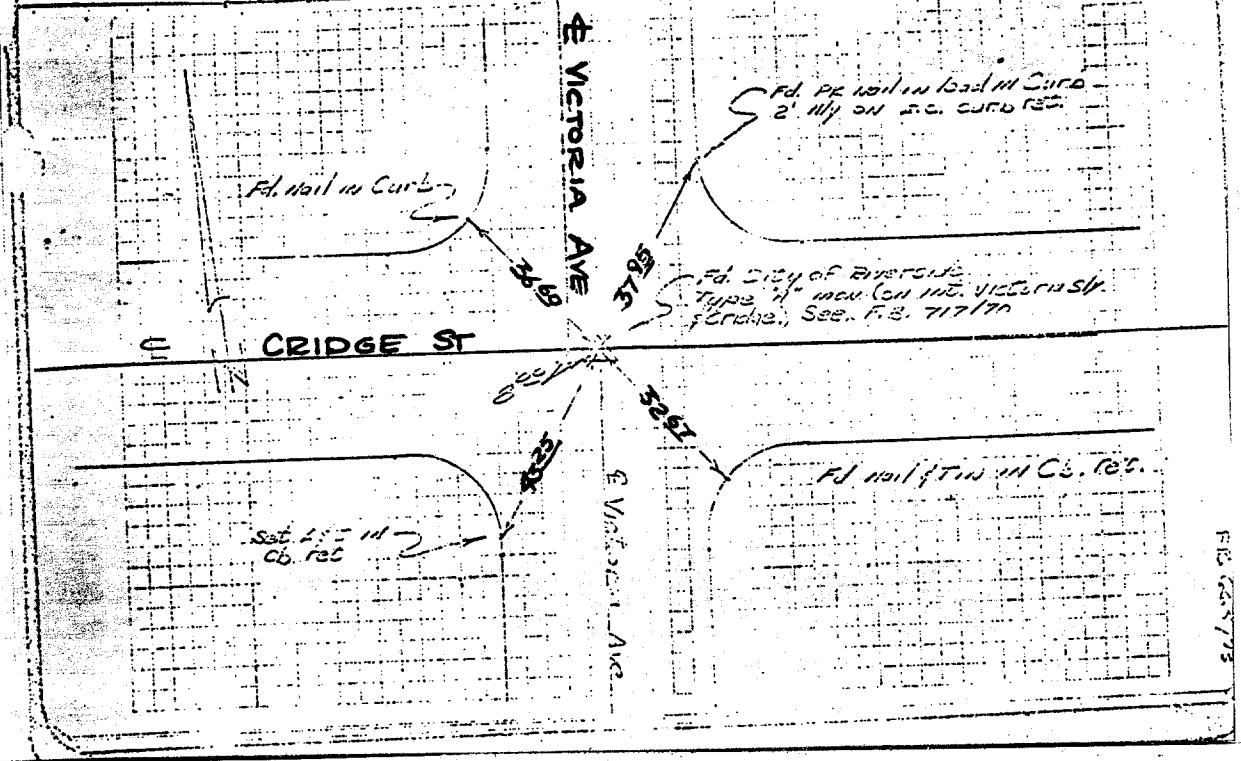 ℄ VICTORIA AVE
Fd. PK nail in lead in Curb
2' N'ly on curb ret.
Fd. Nail in Curb
36.69
37.95
Fd. City of Riverside
Type "A" mon (on int. Victoria Sly.
& Cridge) See. F.B. 717/70
℄ CRIDGE ST
32.67
Fd nail & Tin in Cb. ret.
Set in
Cb. ret
℄ Ave